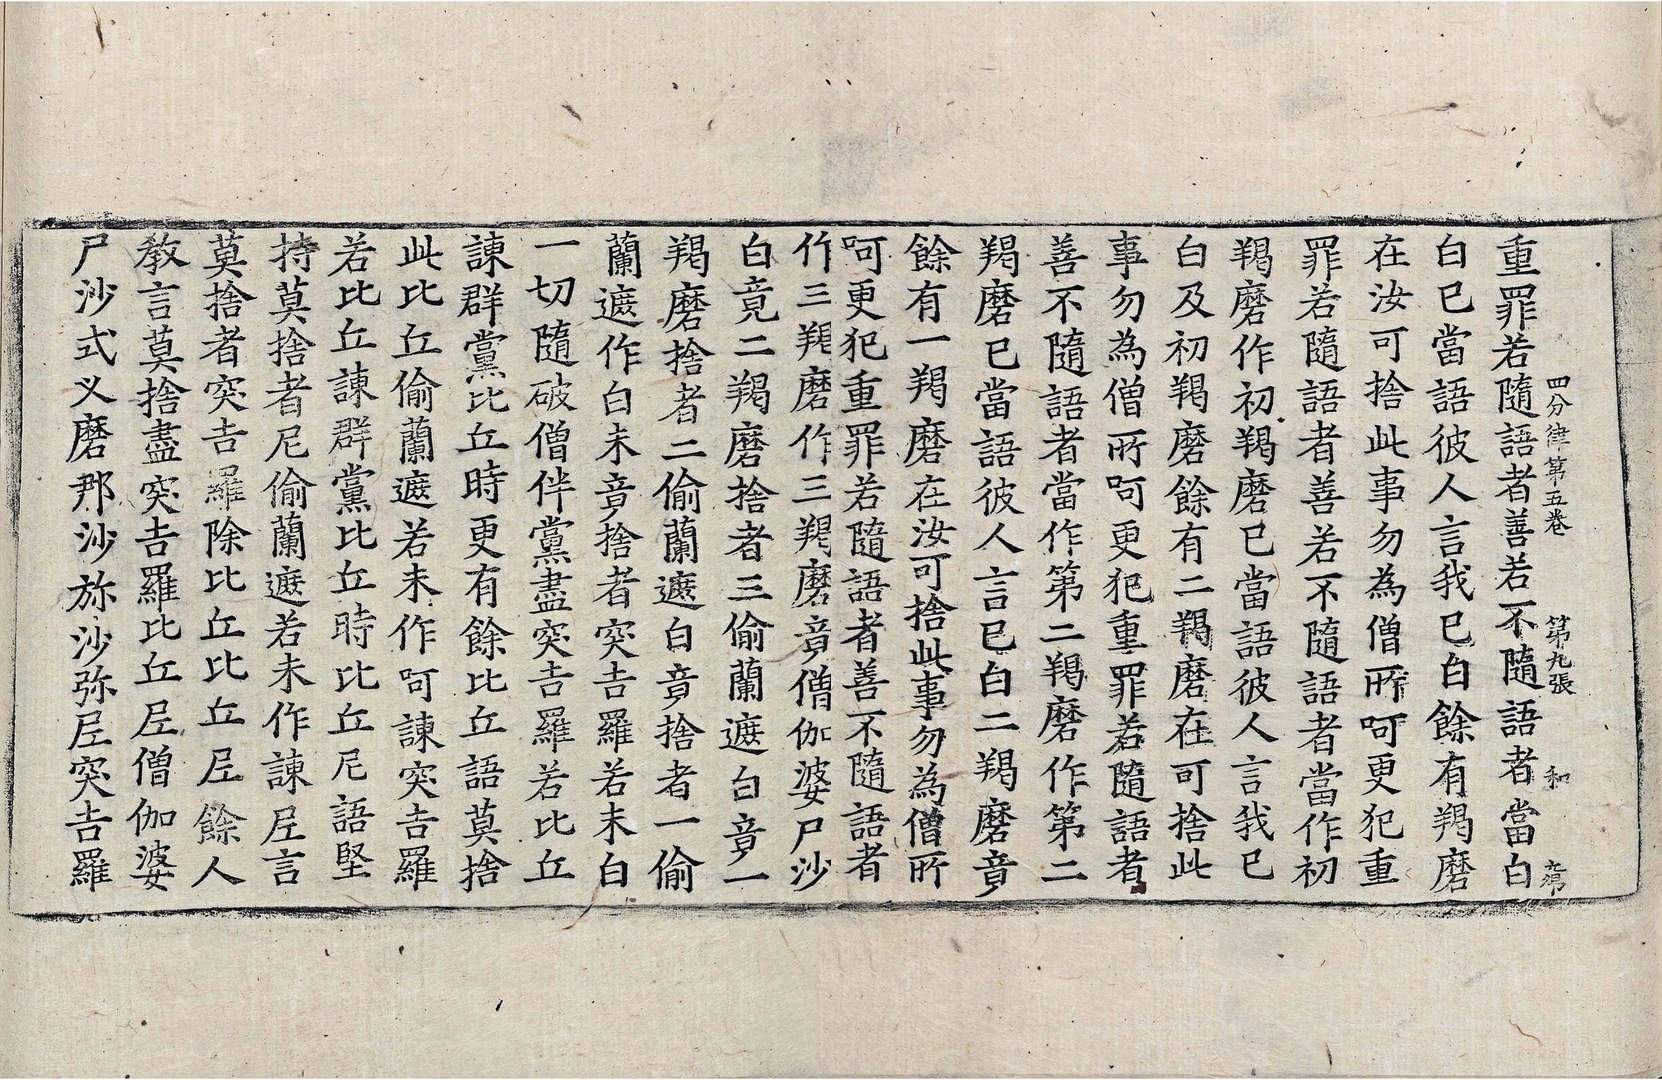 四分律第五卷 第九張 和
重罪若隨語者善若不隨語者當白
白已當語彼人言我已白餘有羯磨
在汝可捨此事勿為僧所呵更犯重
罪若隨語者善若不隨語者當作初
羯磨作初羯磨已當語彼人言我已
白及初羯磨餘有二羯磨在可捨此
事勿為僧所呵更犯重罪若隨語者
善不隨語者當作第二羯磨作第二
羯磨已當語彼人言已白二羯磨竟
餘有一羯磨在汝可捨此事勿為僧所
呵更犯重罪若隨語者善不隨語者
作三羯磨作三羯磨竟僧伽婆尸沙
白竟二羯磨捨者三偷蘭遮白竟一
羯磨捨者二偷蘭遮白竟捨者一偷
蘭遮作白未竟捨者突吉羅若未白
一切隨破僧伴黨盡突吉羅若比丘
諫群黨比丘時更有餘比丘語莫捨
此比丘偷蘭遮若未作呵諫突吉羅
若比丘諫群黨比丘時比丘尼語堅
持莫捨者尼偷蘭遮若未作諫尼言
莫捨者突吉羅除比丘比丘尼餘人
教言莫捨盡突吉羅比丘尼僧伽婆
尸沙式叉磨那沙弥沙弥尼突吉羅